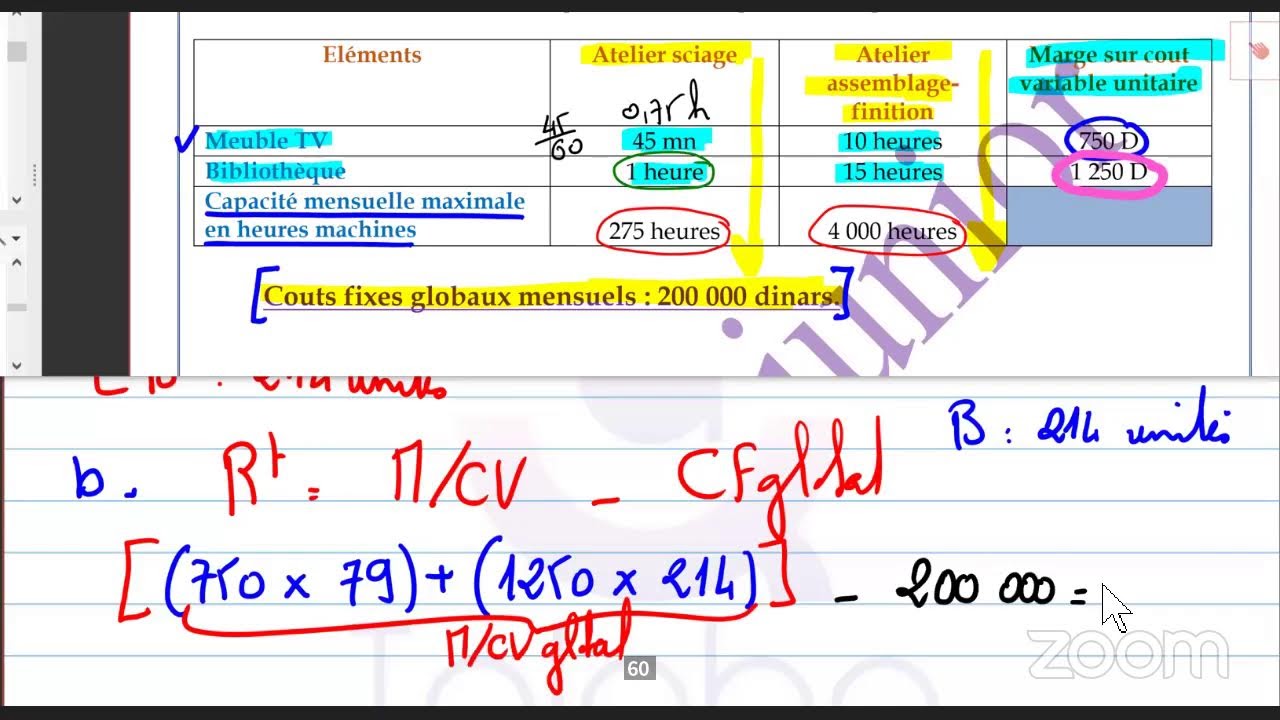 Eléments Atelier sciage Atelier assemblage-finition Marge sur cout variable unitaire
45/60 0,75 h
Meuble TV 45 mn 10 heures 750 D
Bibliothèque 1 heure 15 heures 1 250 D
Capacité mensuelle maximale en heures machines 275 heures 4 000 heures
[Couts fixes globaux mensuels : 200 000 dinars.]
214 unités
B : 214 unités
b. Rt = M/CV - CF global
[(750 x 79) + (1250 x 214)] - 200 000 =
M/CV global
60
zoom
junior